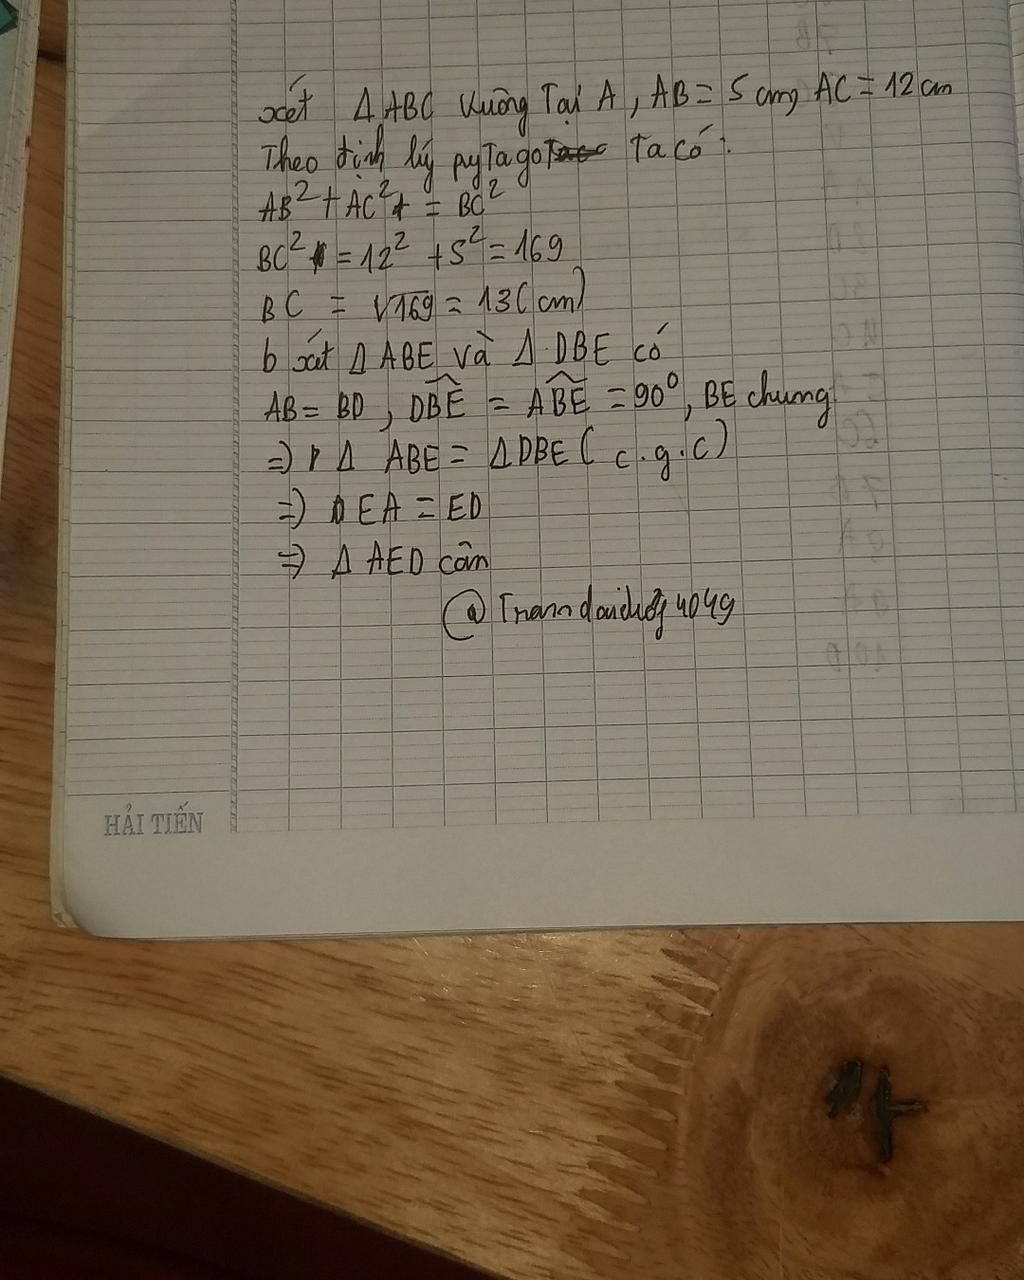 xét Δ ABC vuông Tại A, AB = 5 cm, AC = 12 cm
Theo định lý pyTago Ta có:
AB² + AC² = BC²
BC² = 12² + 5² = 169
BC = √169 = 13 (cm)
b xét Δ ABE và Δ DBE có
AB = BD, DBE = ABE = 90°, BE chung
=> Δ ABE = Δ DBE ( c.g.c)
=> EA = ED
=> Δ AED cân
HẢI TIẾN